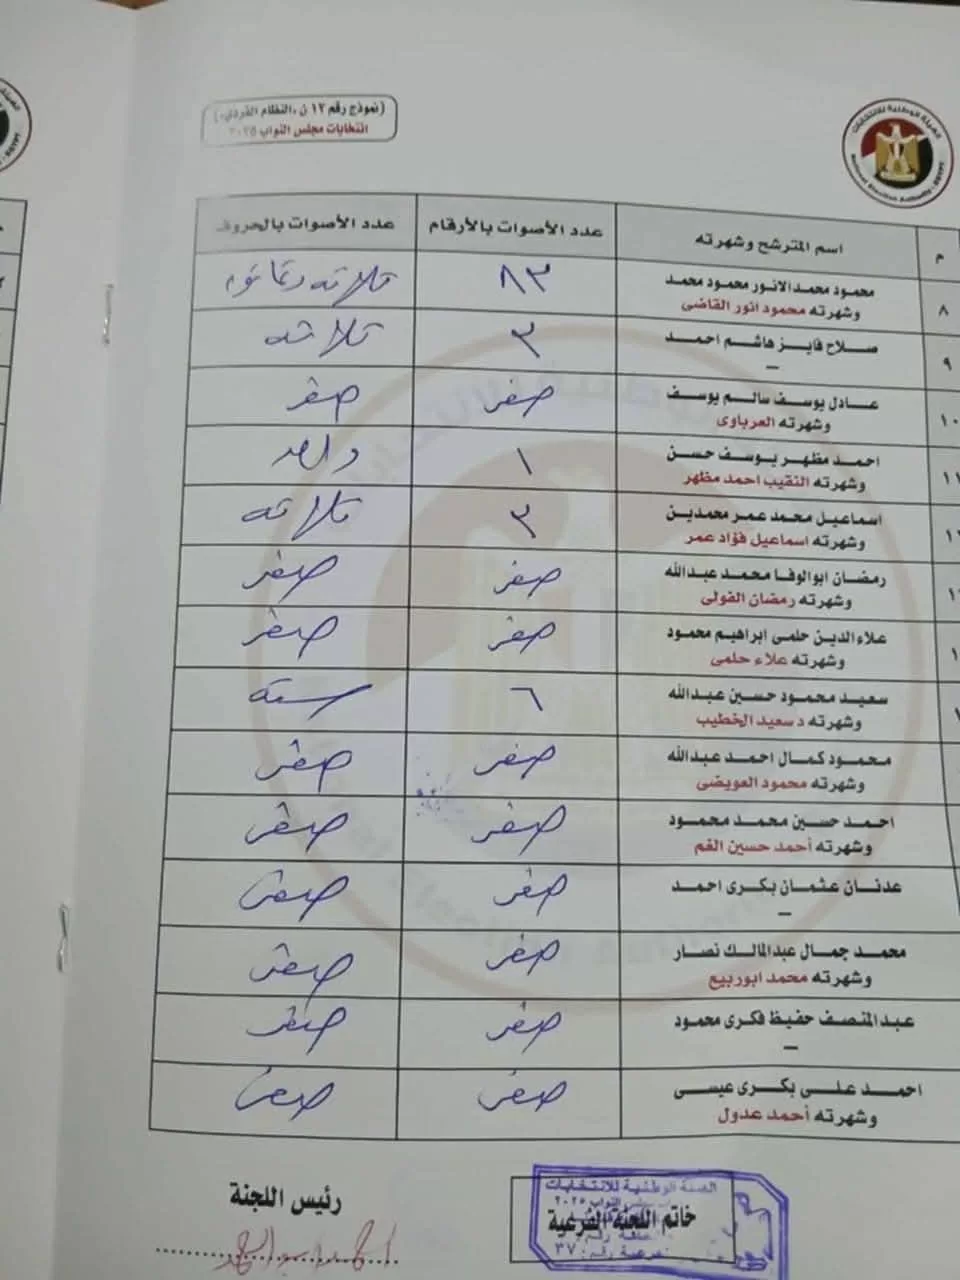 (نموذج رقم ١٢ ن «النظام الفردي»)
انتخابات مجلس النواب ٢٠٢٥
الهيئة الوطنية للانتخابات
National Election Authority - EGYPT
م
اسم المترشح وشهرته
عدد الأصوات بالأرقام
عدد الأصوات بالحروف
٨
محمود محمد الانور محمود محمد
وشهرته محمود انور القاضى
٨٣
ثلاثه وثمانون
٩
صلاح فايز هاشم احمد
–
٣
ثلاثه
١٠
عادل يوسف سالم يوسف
وشهرته العرباوى
صفر
صفر
احمد مظهر يوسف حسن
وشهرته النقيب احمد مظهر
١
واحد
اسماعيل محمد عمر محمدين
وشهرته اسماعيل فؤاد عمر
٣
ثلاثه
رمضان ابوالوفا محمد عبدالله
وشهرته رمضان الفولى
صفر
صفر
علاء الدين حلمى ابراهيم محمود
وشهرته علاء حلمى
صفر
صفر
سعيد محمود حسين عبدالله
وشهرته د سعيد الخطيب
٦
سته
محمود كمال احمد عبدالله
وشهرته محمود العويضى
صفر
صفر
احمد حسين محمد محمود
وشهرته أحمد حسين الفم
صفر
صفر
عدنان عثمان بكرى احمد
–
صفر
صفر
محمد جمال عبدالمالك نصار
وشهرته محمد ابوربيع
صفر
صفر
عبدالمنصف حفيظ فكرى محمود
–
صفر
صفر
احمد على بكرى عيسى
وشهرته أحمد عدول
صفر
صفر
خاتم اللجنة الفرعية
الهيئة الوطنية للانتخابات
مجلس النواب ٢٠٢٥
فرعية رقم: ٣٧
رئيس اللجنة